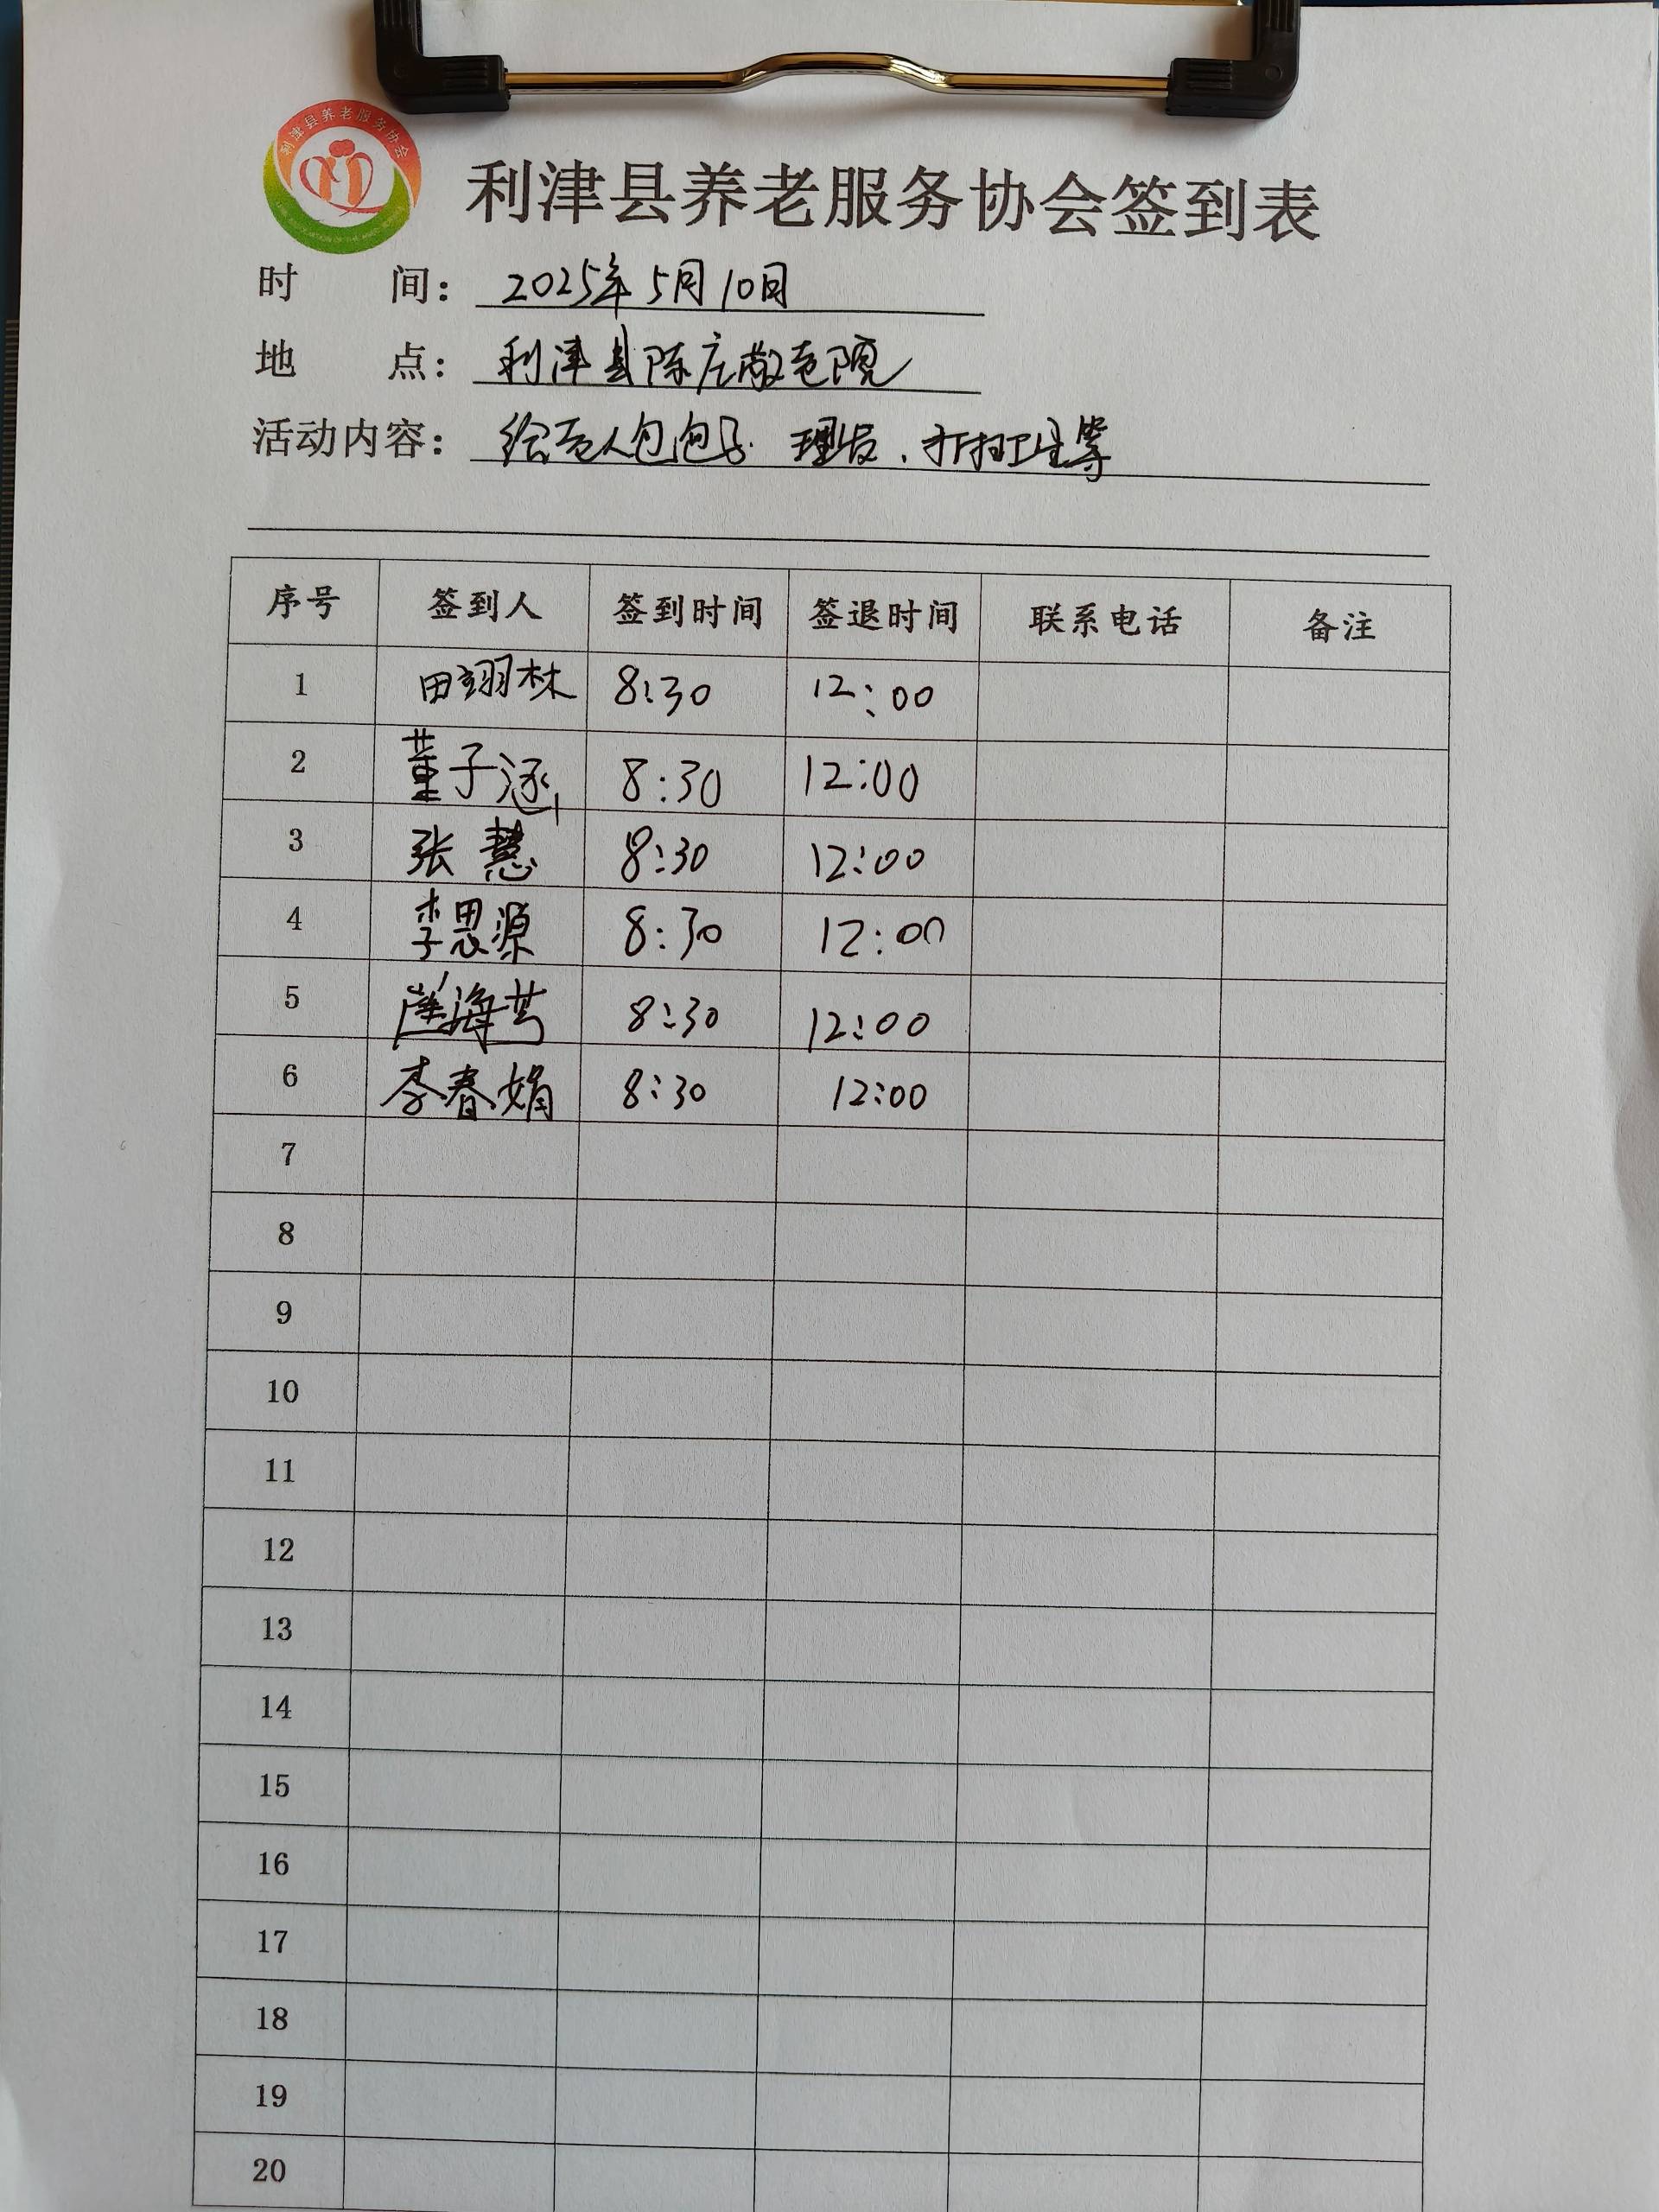 利津县养老服务协会
利津县养老服务协会签到表
时 间： 2025年5月10日
地 点： 利津县陈庄敬老院
活动内容： 给老人包包子 理发、打扫卫生等
序号 签到人 签到时间 签退时间 联系电话 备注
1 田翊林 8:30 12:00
2 董子涵 8:30 12:00
3 张慧 8:30 12:00
4 李思源 8:30 12:00
5 8:30 12:00
6 李春娟 8:30 12:00
7
8
9
10
11
12
13
14
15
16
17
18
19
20